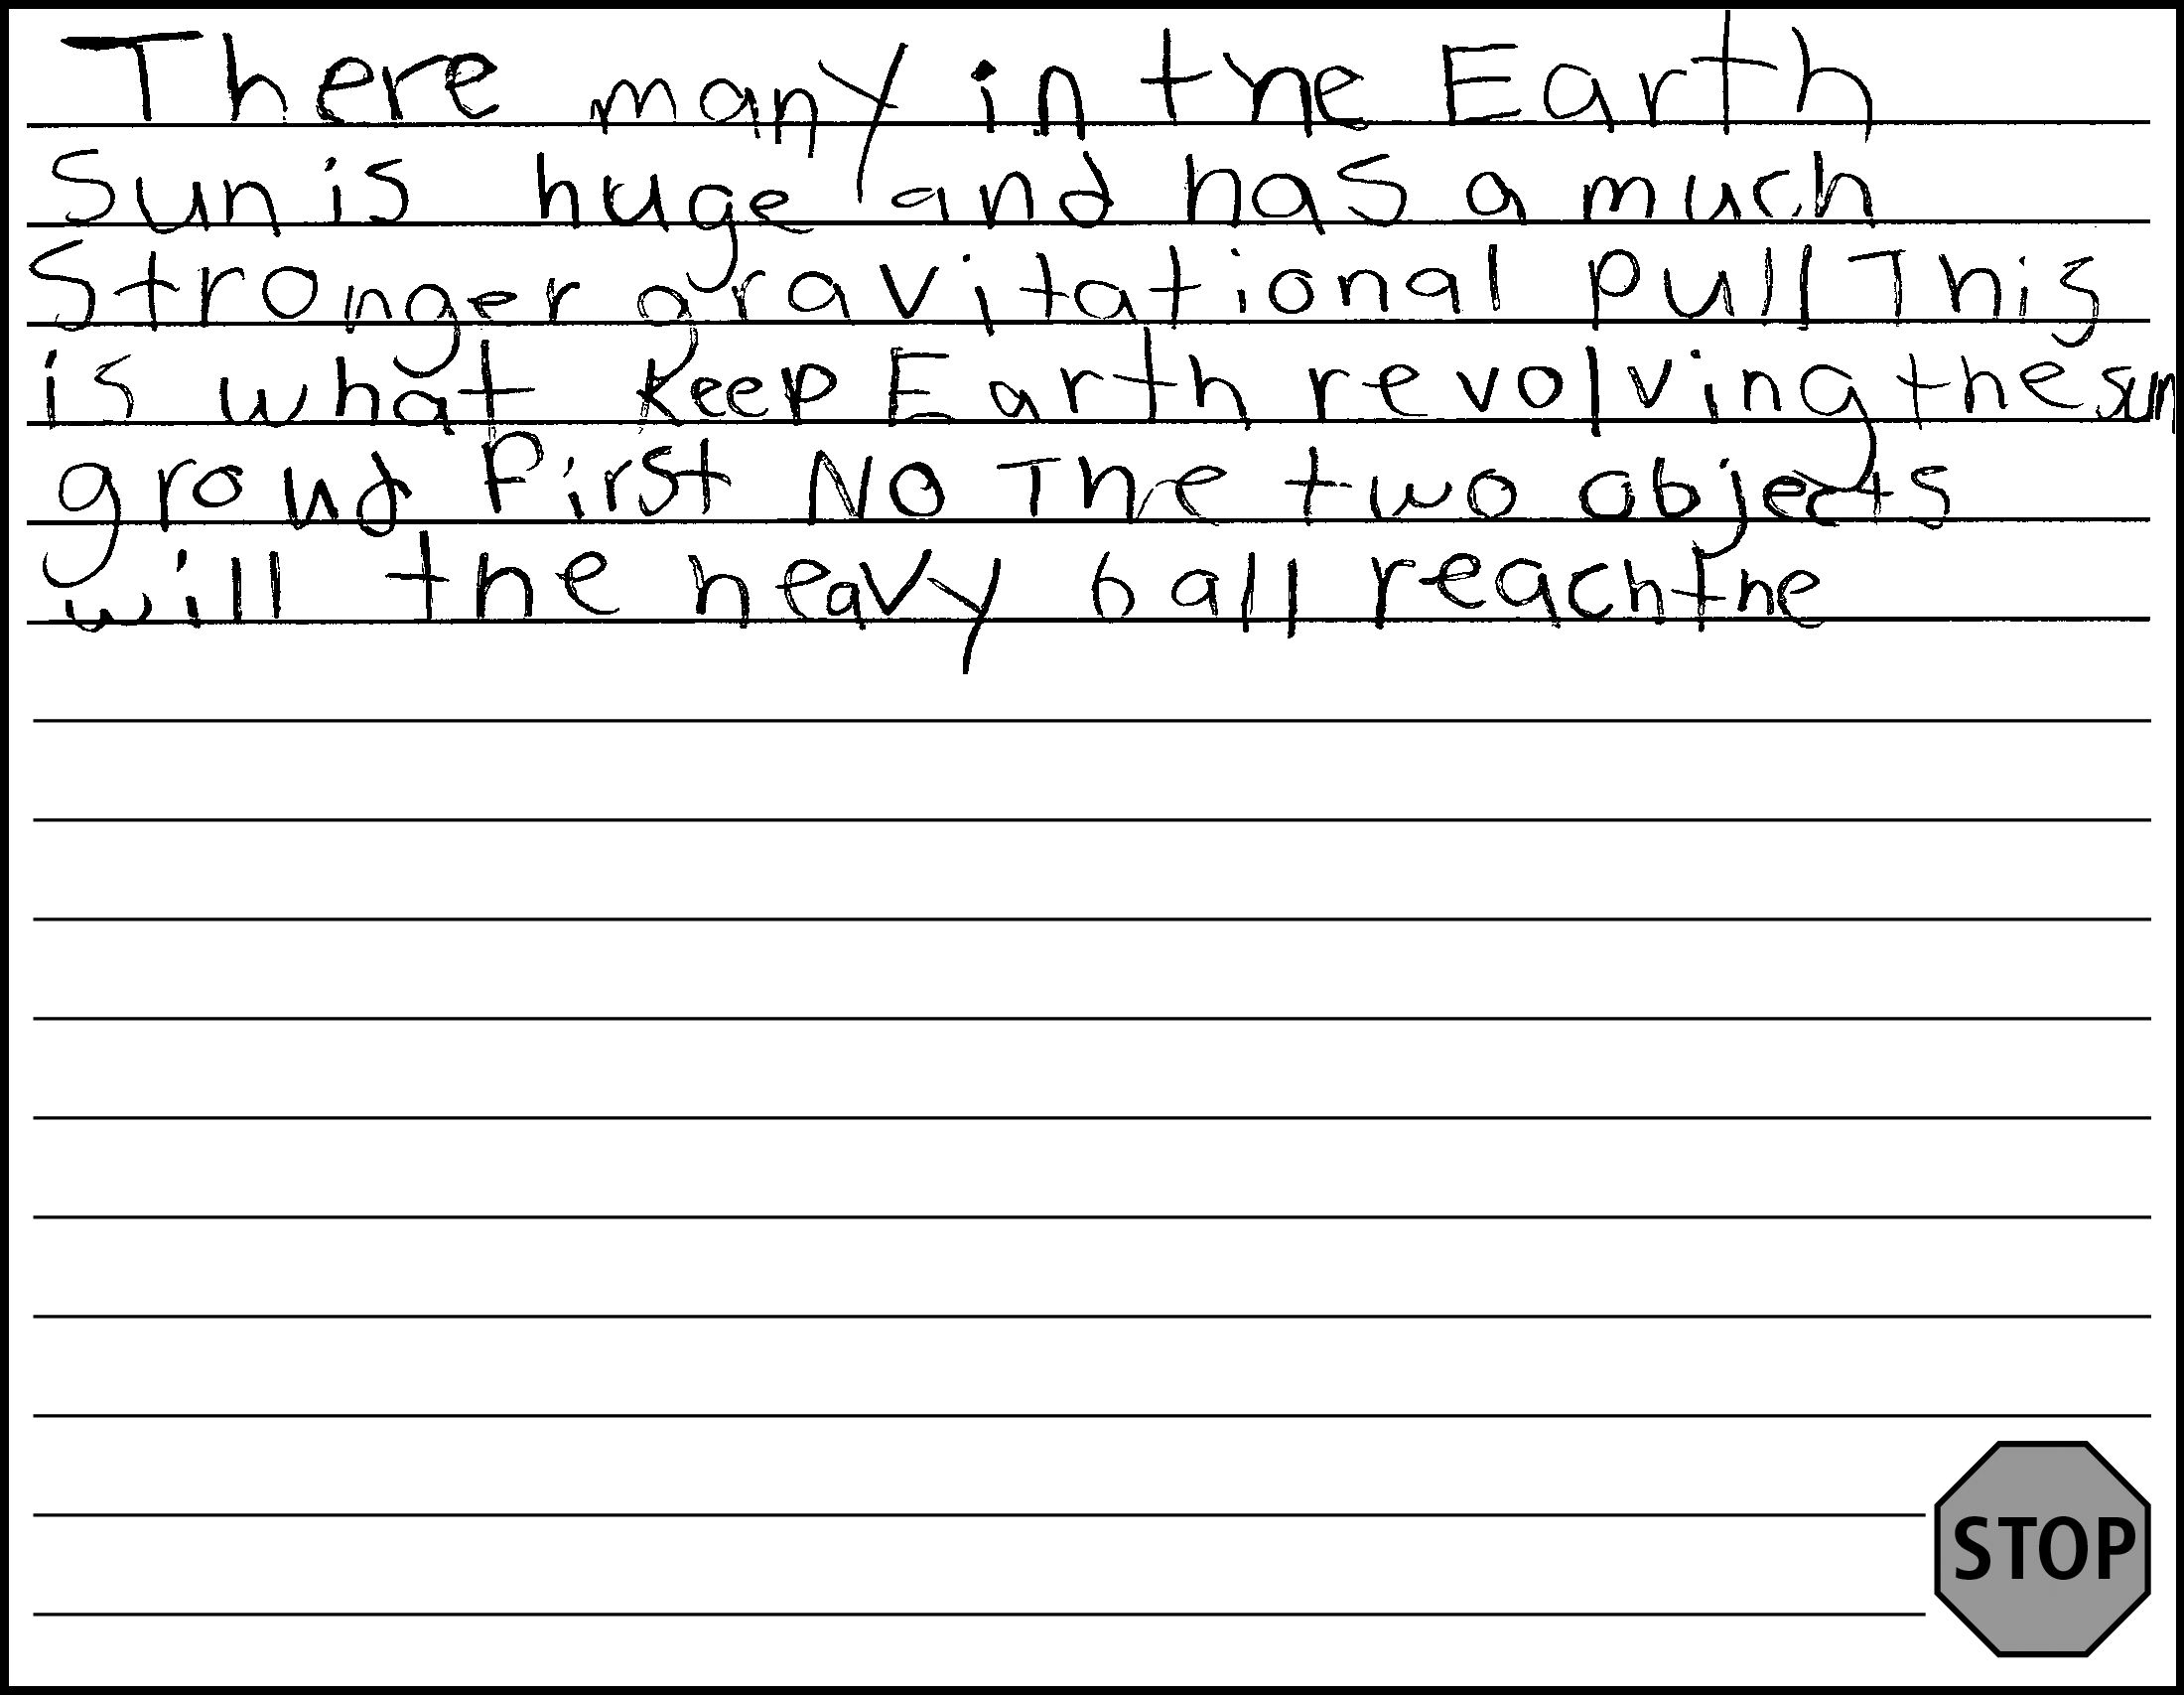 There many in the Earth
Sun is huge and has a much
Stronger gravitational pull This
is what keep Earth revolving the sun
ground first No The two objects
will the heavy ball reach the
STOP